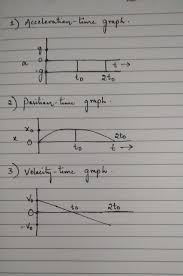 1) Acceleration-time graph.
g
a 0
-g
t0 2t0
t →
2) Position-time graph.
x0
x
0
t0 t → 2t0
3) Velocity-time graph.
V0
0 t0 2t0
-V0